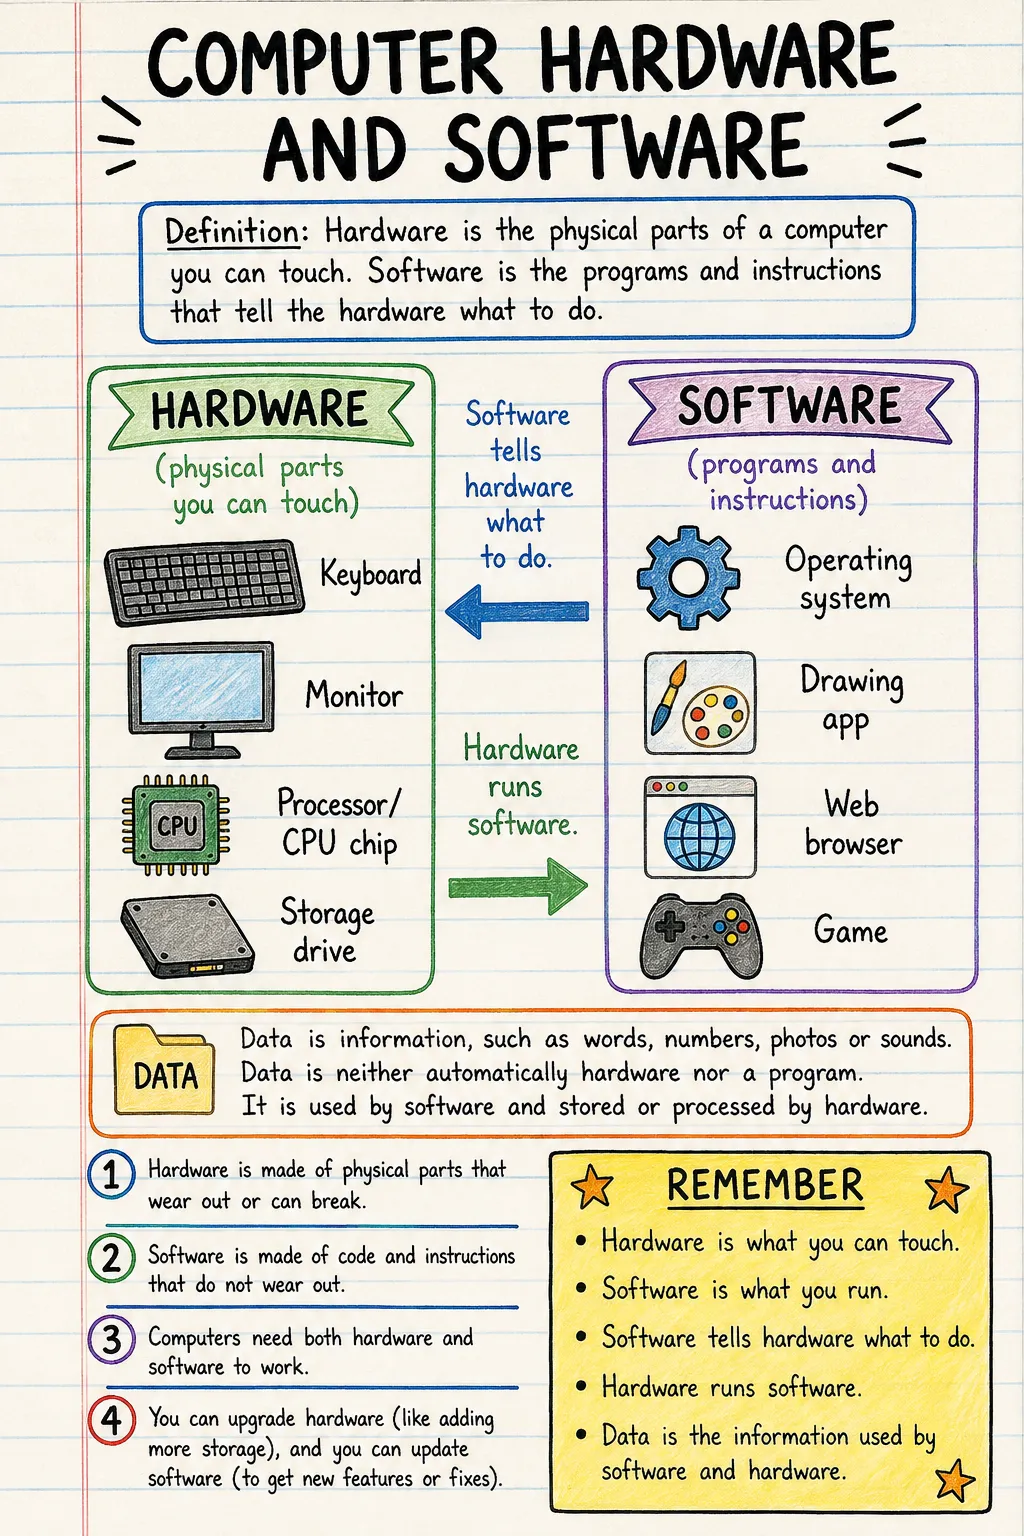 COMPUTER HARDWARE
AND SOFTWARE
Definition: Hardware is the physical parts of a computer
you can touch. Software is the programs and instructions
that tell the hardware what to do.
HARDWARE
(physical parts
you can touch)
Keyboard
Monitor
CPU
Processor/
CPU chip
Storage
drive
Software
tells
hardware
what
to do.
Hardware
runs
software.
SOFTWARE
(programs and
instructions)
Operating
system
Drawing
app
Web
browser
Game
DATA
Data is information, such as words, numbers, photos or sounds.
Data is neither automatically hardware nor a program.
It is used by software and stored or processed by hardware.
1 Hardware is made of physical parts that
wear out or can break.
2 Software is made of code and instructions
that do not wear out.
3 Computers need both hardware and
software to work.
4 You can upgrade hardware (like adding
more storage), and you can update
software (to get new features or fixes).
REMEMBER
• Hardware is what you can touch.
• Software is what you run.
• Software tells hardware what to do.
• Hardware runs software.
• Data is the information used by
software and hardware.